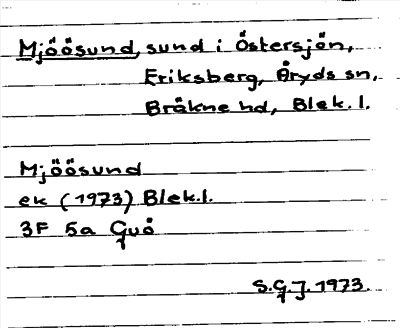 Mjöösund, sund i Östersjön,
Eriksberg, Åryds sn,
Bräkne hd, Blek.l.
Mjöösund
ek (1973) Blek.l.
3F 5a Guö
S.G.J. 1973.